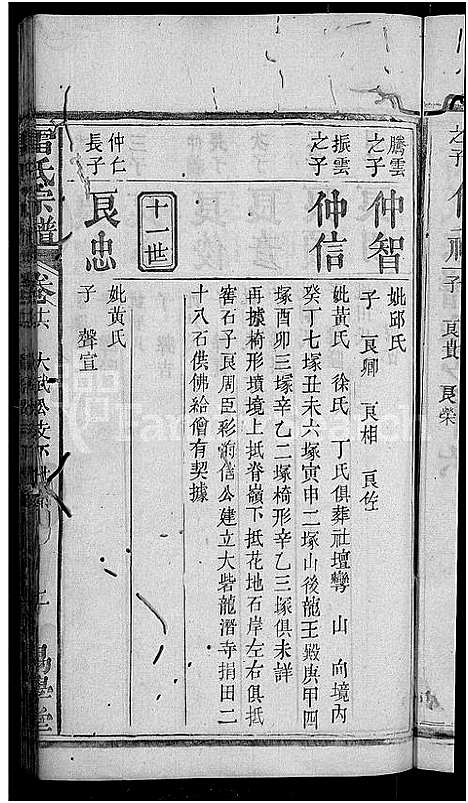 之子
子 良貴 良榮
騰雲之子 仲智
妣邱氏
子 良卿 良相 良佐
振雲之子 仲信
妣黃氏 徐氏 丁氏俱葬社壇彎 山 向境內
癸丁七塚丑未六塚寅申二塚山後龍王殿庚甲四
塚酉卯三塚辛乙二塚椅形辛乙三塚俱未詳
再據椅形墳境上抵脊嶺下抵花地石岸左右俱抵
窖石子良周臣彩 信公建立大砦龍潛寺捐田二
十八石供佛給僧有契據
十一世
仲仁長子 良忠
妣黃氏
子 聲宣
雷氏宗譜 卷